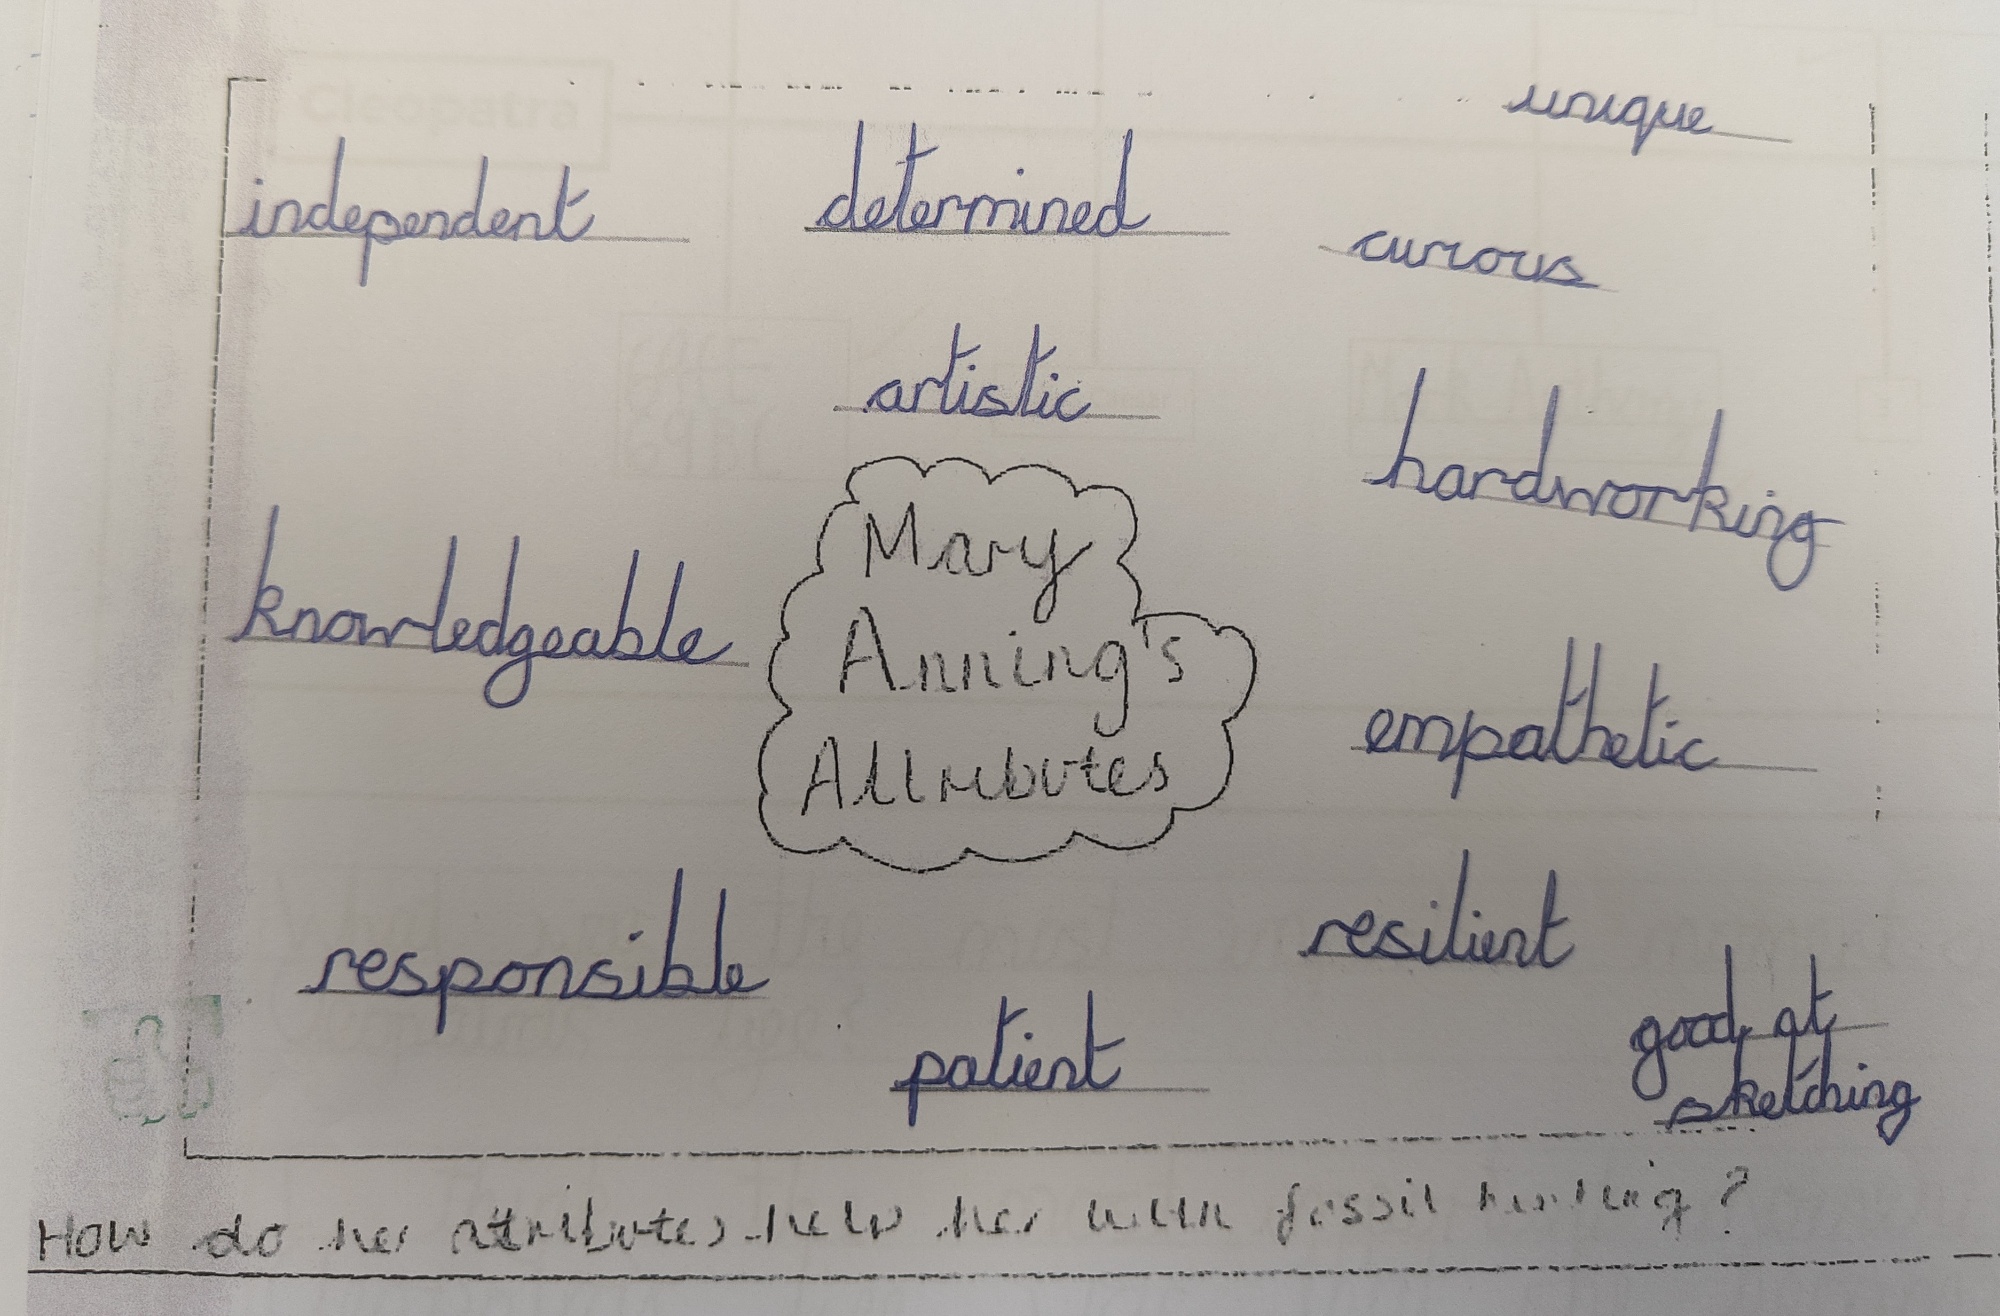 Cleopatra
unique
independent
determined
curious
artistic
hardworking
Mary
Anning's
Attributes
knowledgeable
empathetic
responsible
resilient
patient
good at
sketching
How do her attributes help her with fossil hunting?